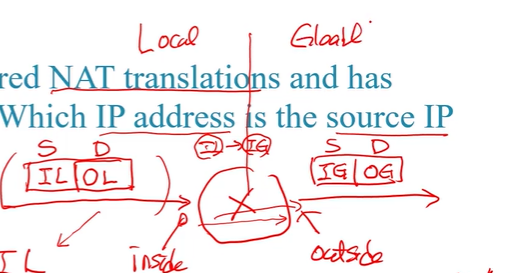 Local Gloabl
red NAT translations and has
Which IP address is the source IP
S D IL → IG S D
IL OL IG OG
IL inside outside